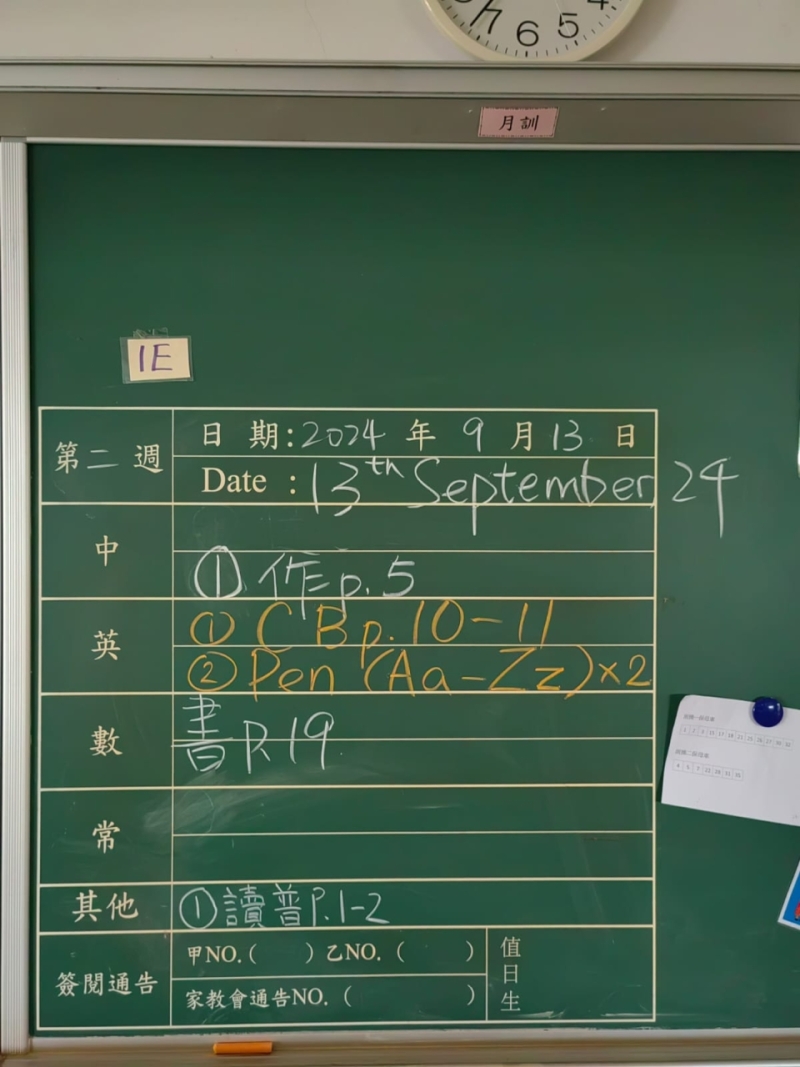 7 6 5 4
月訓
1E
第二週
日期:2024年9月13日
Date : 13th September, 24
中
① 作 p.5
英
① CB p.10-11
② Pen (Aa-Zz)×2
數
書 P.19
常
其他
① 讀普 P.1-2
簽閱通告
甲NO.( ) 乙NO. ( )
家教會通告NO. ( )
值日生